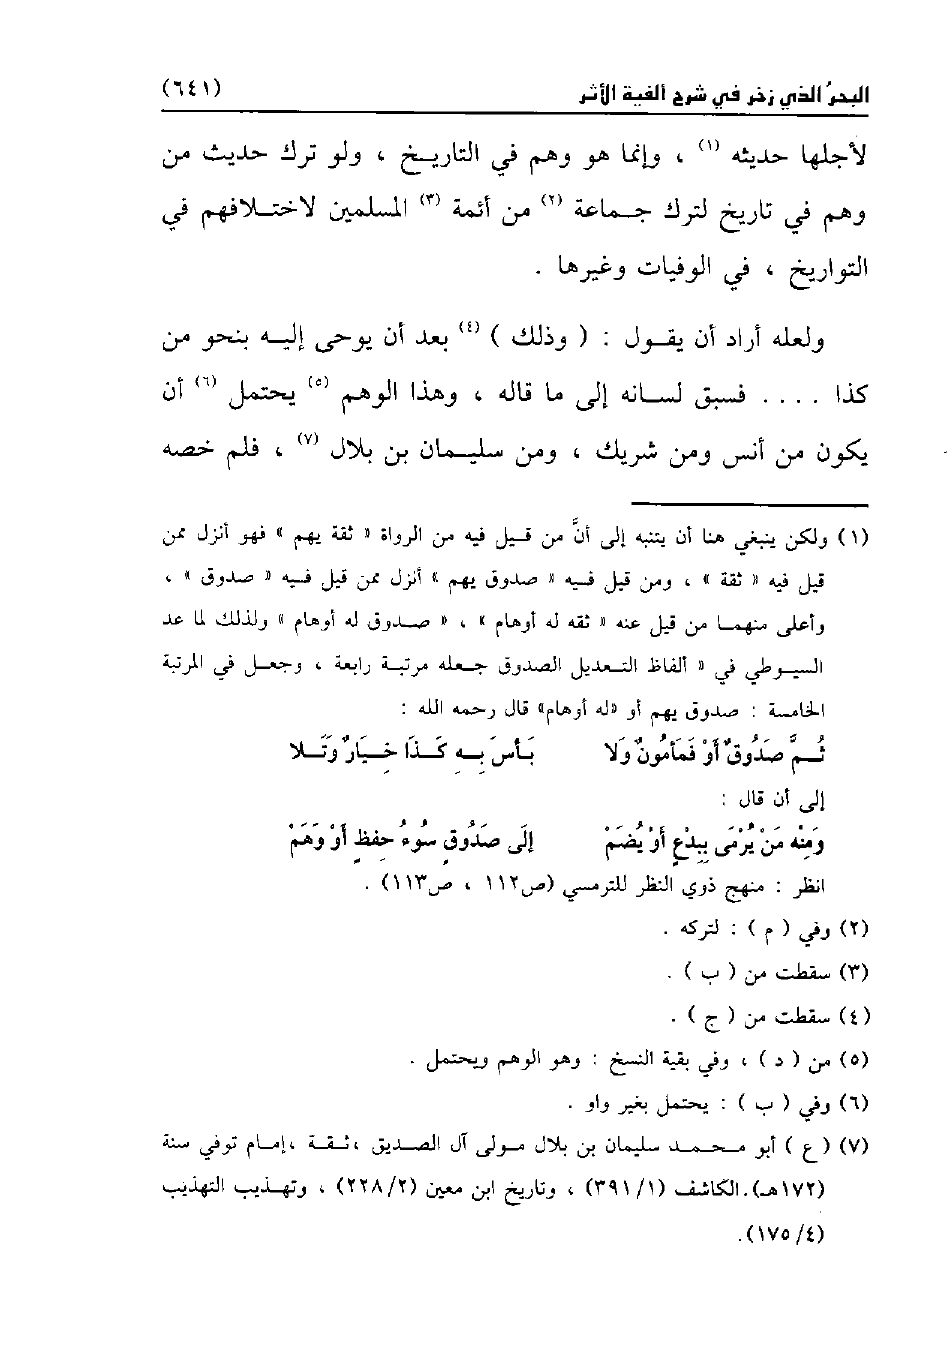 البحرُ الذي زخر في شرح ألفية الأثر (٦٤١)
لأجلها حديثه (١) ، وإنما هو وهم في التاريخ ، ولو ترك حديث من
وهم في تاريخ لترك جماعة (٢) من أئمة (٣) المسلمين لاختلافهم في
التواريخ ، في الوفيات وغيرها .
ولعله أراد أن يقول : ( وذلك ) (٤) بعد أن يوحى إليه بنحو من
كذا .... فسبق لسانه إلى ما قاله ، وهذا الوهم (٥) يحتمل (٦) أن
يكون من أنس ومن شريك ، ومن سليمان بن بلال (٧) ، فلم خصه
(١) ولكن ينبغي هنا أن يتنبه إلى أنَّ من قيل فيه من الرواة « ثقة يهم » فهو أنزل ممن
قيل فيه « ثقة » ، ومن قيل فيه « صدوق يهم » أنزل ممن قيل فيه « صدوق » ،
وأعلى منهما من قيل عنه « ثقه له أوهام » ، « صدوق له أوهام » ولذلك لما عد
السيوطي في « ألفاظ التعديل الصدوق جعله مرتبة رابعة ، وجعل في المرتبة
الخامسة : صدوق يهم أو «له أوهام» قال رحمه الله :
ثُمَّ صَدُوقٌ أَوْ فَمَأمُونٌ وَلَا بَأسَ بِهِ كَذَا خِيَارٌ وَتَلا
إلى أن قال :
وَمِنْه مَنْ يُرْمَى بِبِدْعٍ أَوْ يُضَمْ إلَى صَدُوقٍ سُوءُ حِفظٍ أَوْ وَهَمْ
انظر : منهج ذوي النظر للترمسي (ص١١٢ ، ص١١٣) .
(٢) وفي ( م ) : لتركه .
(٣) سقطت من ( ب ) .
(٤) سقطت من ( ج ) .
(٥) من ( د ) ، وفي بقية النسخ : وهو الوهم ويحتمل .
(٦) وفي ( ب ) : يحتمل بغير واو .
(٧) ( ع ) أبو محمد سليمان بن بلال مولى آل الصديق ،ثقة ،إمام توفي سنة
(١٧٢هـ).الكاشف (٣٩١/١) ، وتاريخ ابن معين (٢٢٨/٢) ، وتهذيب التهذيب
(١٧٥/٤).